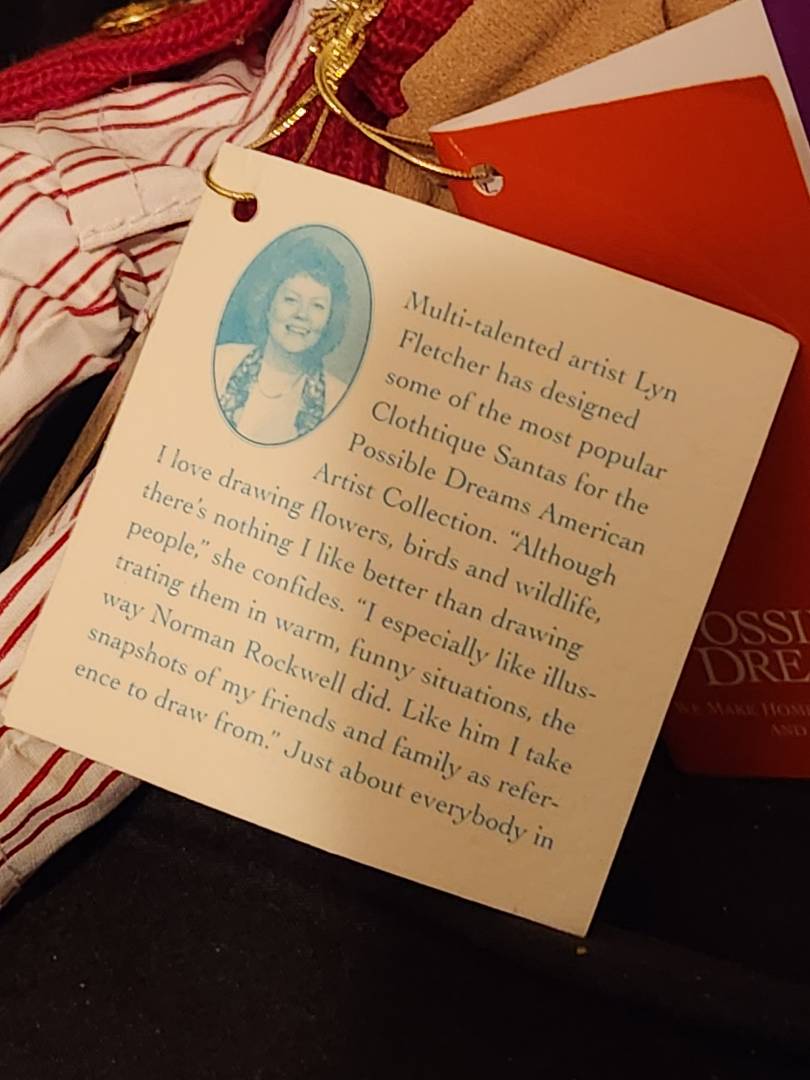 Multi-talented artist Lyn
Fletcher has designed
some of the most popular
Clothtique Santas for the
Possible Dreams American
Artist Collection. “Although
I love drawing flowers, birds and wildlife,
there’s nothing I like better than drawing
people,” she confides. “I especially like illus-
trating them in warm, funny situations, the
way Norman Rockwell did. Like him I take
snapshots of my friends and family as refer-
ence to draw from.” Just about everybody in
OSSI
DREA
WE MAKE HOM
AND